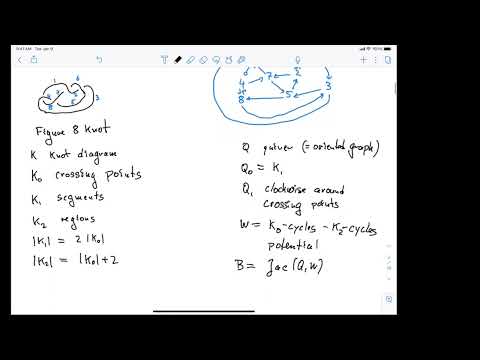 9:41 AM Tue Jan 9
1
6
3
7
2
4
3
8
5
Figure 8 Knot
K knot diagram
K₀ crossing points
K₁ segments
K₂ regions
|K₁| = 2 |K₀|
|K₂| = |K₀| + 2
Q quiver (= oriented graph)
Q₀ = K₁
Q₁ clockwise around
crossing points
W = K₀-cycles - K₂-cycles
potential
B = Jac (Q, W)